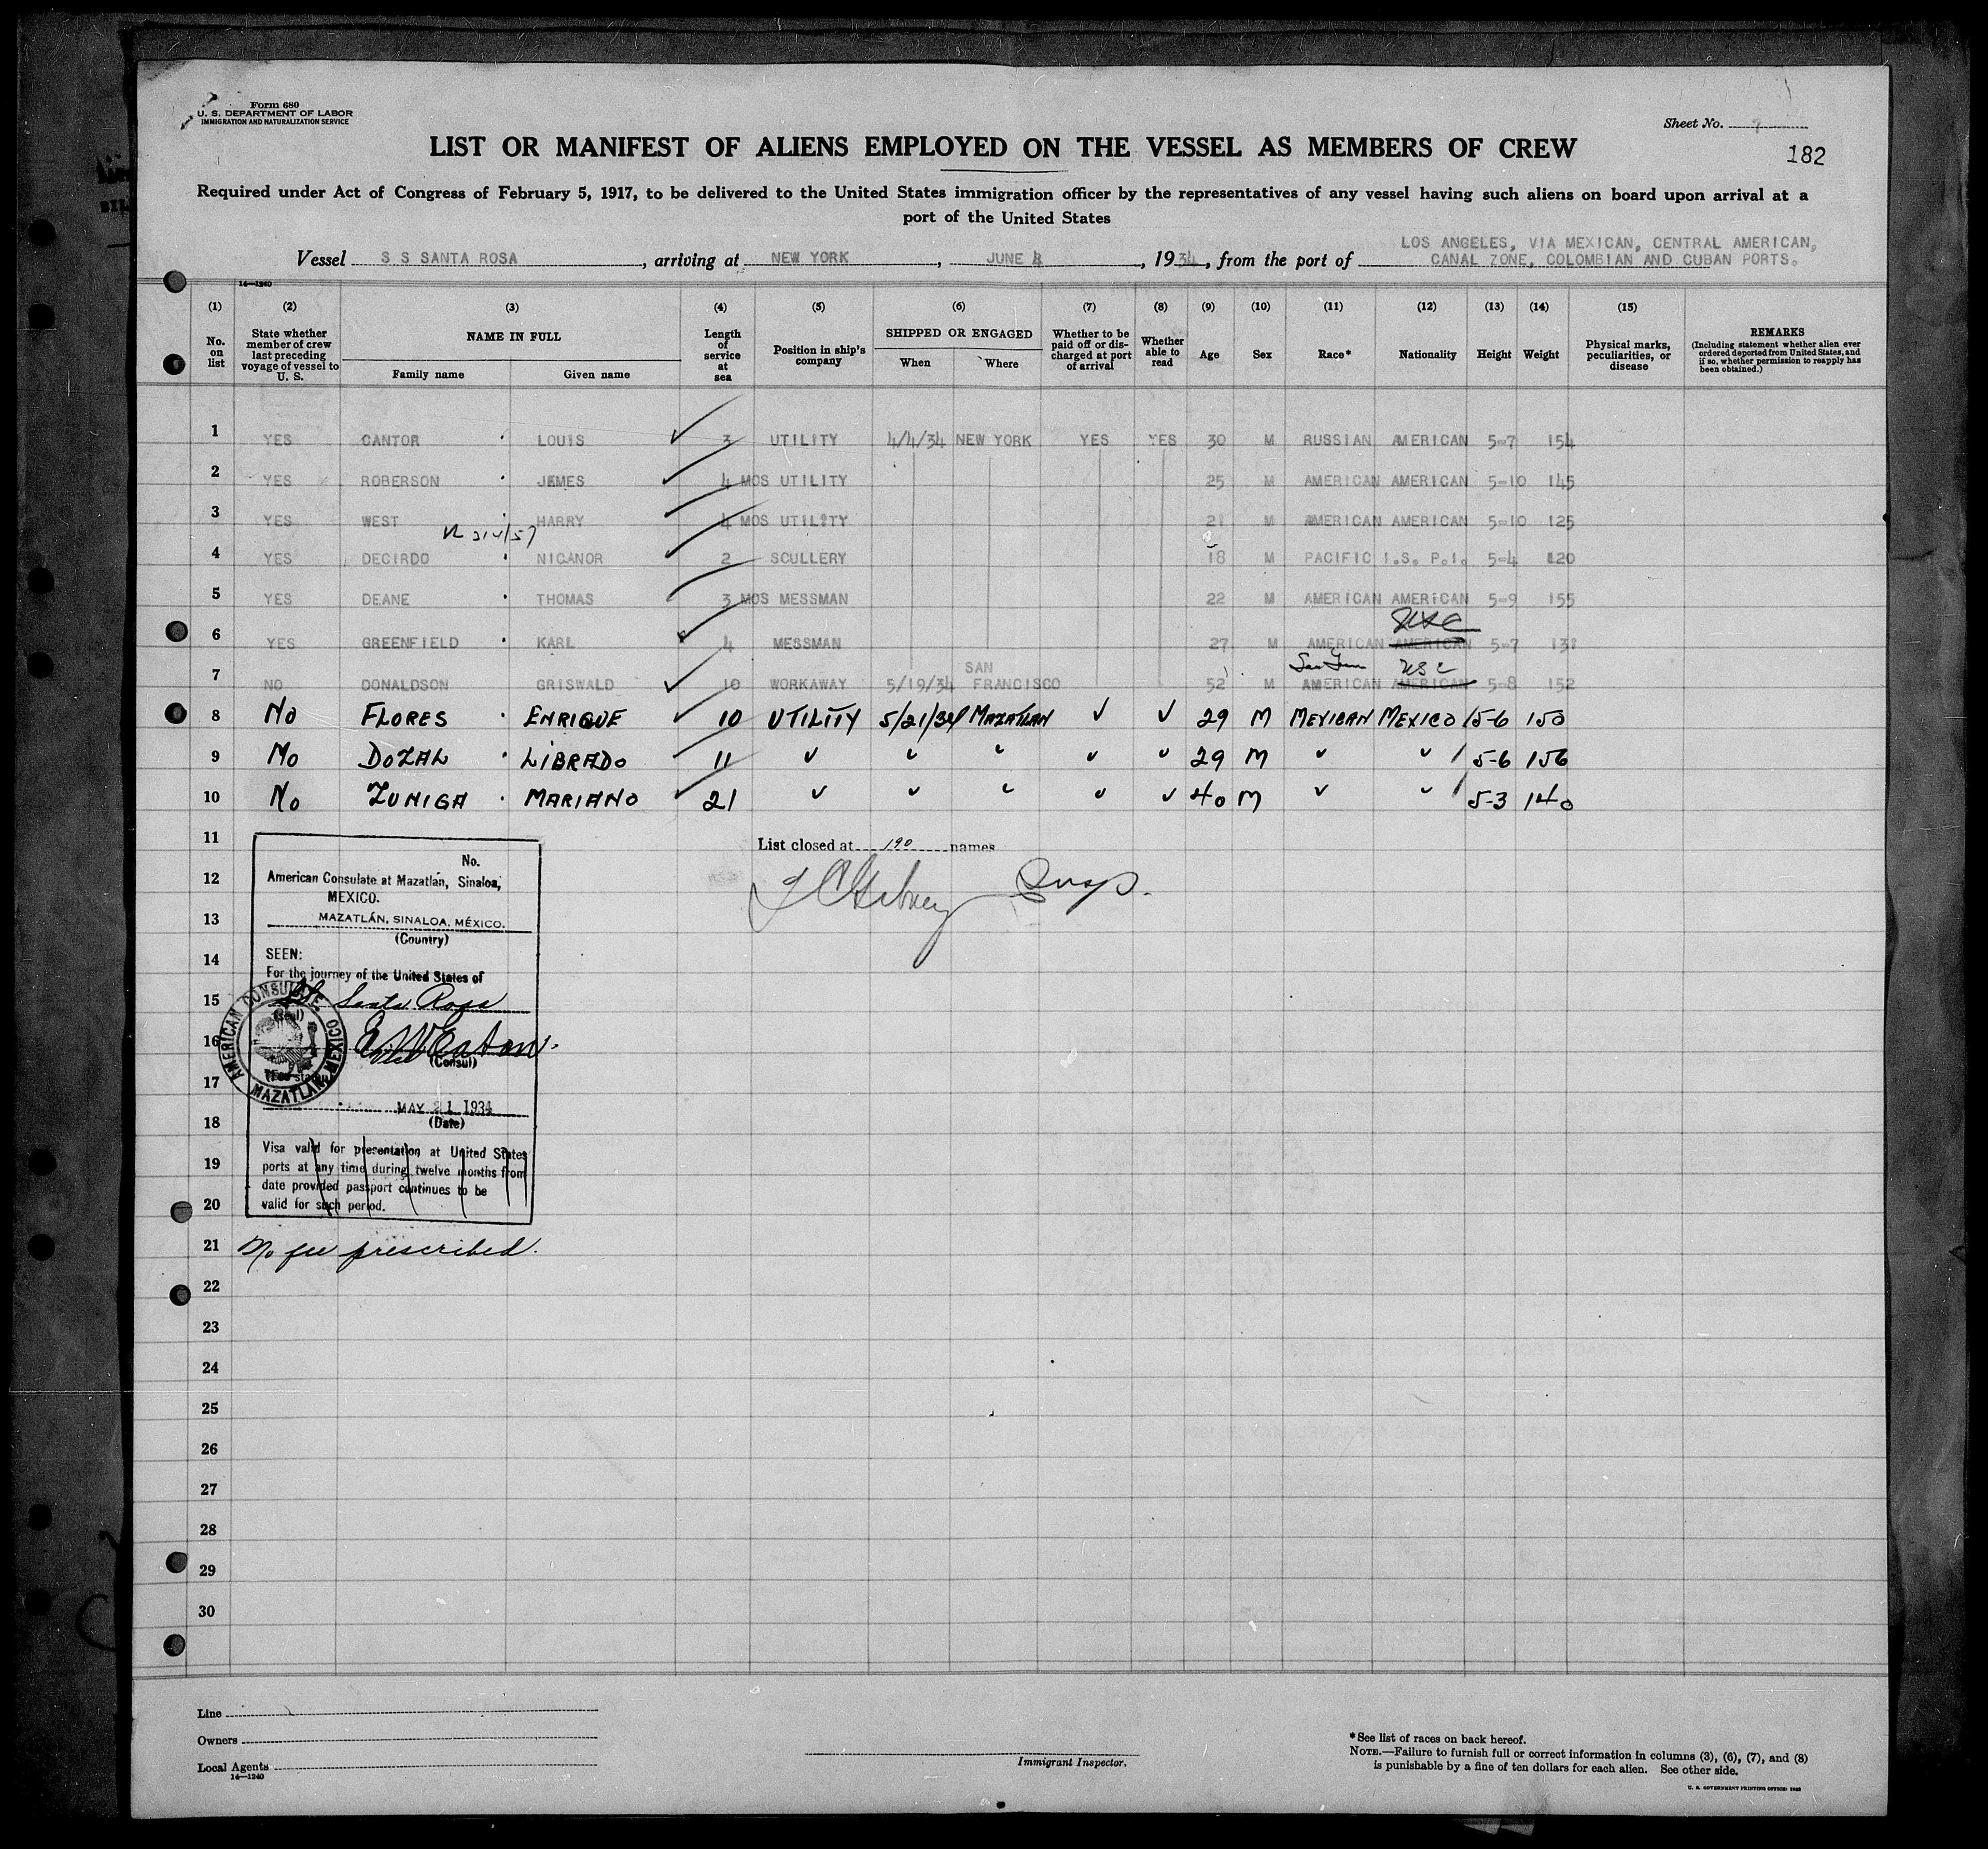 Form 680
U. S. DEPARTMENT OF LABOR
IMMIGRATION AND NATURALIZATION SERVICE
Sheet No.
182
LIST OR MANIFEST OF ALIENS EMPLOYED ON THE VESSEL AS MEMBERS OF CREW
Required under Act of Congress of February 5, 1917, to be delivered to the United States immigration officer by the representatives of any vessel having such aliens on board upon arrival at a
port of the United States
LOS ANGELES, VIA MEXICAN, CENTRAL AMERICAN,
Vessel S S SANTA ROSA, arriving at NEW YORK, JUNE 4, 1934, from the port of CANAL ZONE, COLOMBIAN AND CUBAN PORTS.
14—1240
(1) (2) (3) (4) (5) (6) (7) (8) (9) (10) (11) (12) (13) (14) (15)
No. on list
State whether member of crew last preceding voyage of vessel to U. S.
NAME IN FULL
Family name Given name
Length of service at sea
Position in ship's company
SHIPPED OR ENGAGED
When Where
Whether to be paid off or discharged at port of arrival
Whether able to read
Age
Sex
Race*
Nationality
Height
Weight
Physical marks, peculiarities, or disease
REMARKS
(Including statement whether alien ever ordered deported from United States, and if so, whether permission to reapply has been obtained.)
1 YES CANTOR LOUIS 3 UTILITY 4/4/34 NEW YORK YES YES 30 M RUSSIAN AMERICAN 5-7 154
2 YES ROBERSON JEMES 4 MOS UTILITY 25 M AMERICAN AMERICAN 5-10 145
3 YES WEST HARRY 4 MOS UTILITY 21 M AMERICAN AMERICAN 5-10 125
4 YES DECIRDO NICANOR 2 SCULLERY 18 M PACIFIC I.S. P.I. 5-4 120
5 YES DEANE THOMAS 3 MOS MESSMAN 22 M AMERICAN AMERICAN 5-9 155
USC
6 YES GREENFIELD KARL 4 MESSMAN 27 M AMERICAN AMERICAN 5-7 131
SAN USC
7 NO DONALDSON GRISWALD 10 WORKAWAY 5/19/34 FRANCISCO 52 M AMERICAN AMERICAN 5-8 152
8 No FLORES ENRIQUE 10 UTILITY 5/21/34 MAZATLAN ✓ ✓ 29 M MEXICAN MEXICO 5-6 150
9 No DOZAL LIBRADO 11 " " " " " 29 M " " 5-6 156
10 No ZUNIGA MARIANO 21 " " " " " 40 M " " 5-3 140
11
List closed at 190 names
12
Insp.
13
14
15
16
17
18
19
20
21
22
23
24
25
26
27
28
29
30
No.
American Consulate at Mazatlán, Sinaloa,
MEXICO.
MAZATLÁN, SINALOA, MÉXICO.
(Country)
SEEN:
For the journey of the United States of
SS Santa Rosa
(Seal)
E W Eaton.
(Consul)
AMERICAN CONSULATE
MAZATLAN, MEXICO
MAY 21 1934
(Date)
Visa valid for presentation at United States
ports at any time during twelve months from
date provided passport continues to be
valid for such period.
No fee prescribed.
Line
Owners
Local Agents
14—1240
Immigrant Inspector.
*See list of races on back hereof.
NOTE.—Failure to furnish full or correct information in columns (3), (6), (7), and (8)
is punishable by a fine of ten dollars for each alien. See other side.
U. S. GOVERNMENT PRINTING OFFICE: